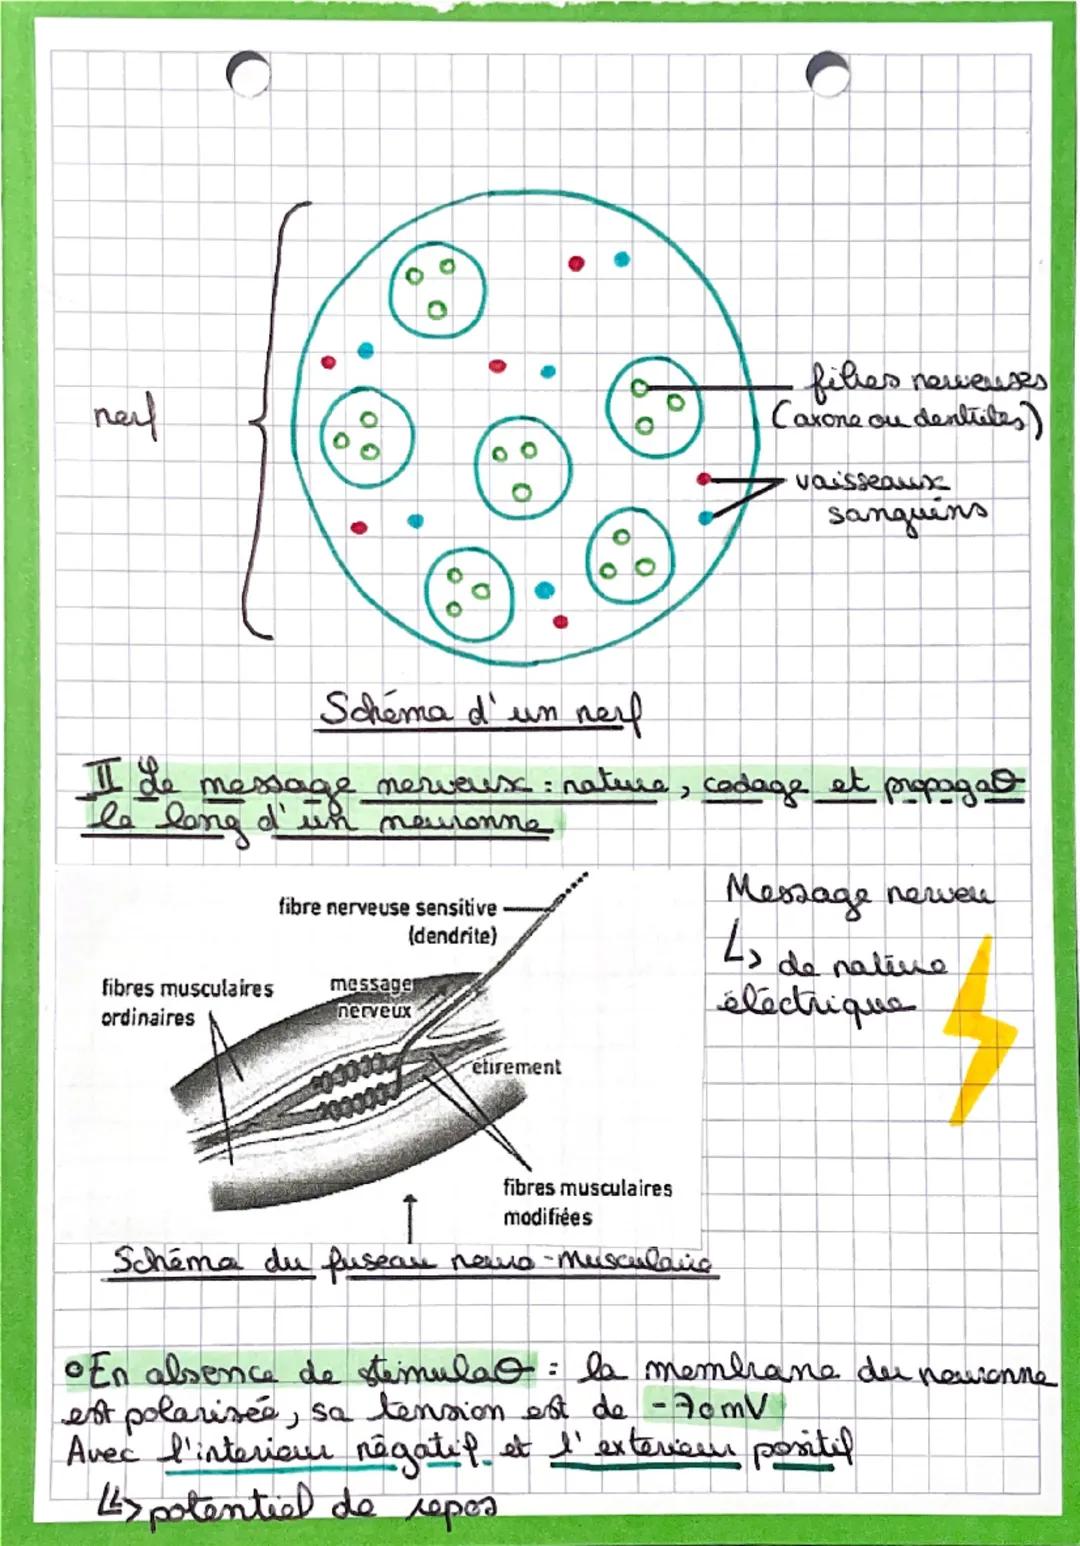 nerf
fibres nerveuses
(axone ou dentrites)
vaisseaux
sanguins
Schéma d'un nerf
II Le message nerveux : nature, codage et propagaθ
le long d'un neuronne
fibre nerveuse sensitive
(dendrite)
fibres musculaires
ordinaires
message
nerveux
étirement
fibres musculaires
modifiées
Message nerveu
↳ de nature
électrique
Schéma du fuseau neuro-musculaire
• En absence de stimulaθ : la membrane du neuronne
est polarisée, sa tension est de -70mV
Avec l'interieur négatif et l'exterieur positif
↳ potentiel de repos